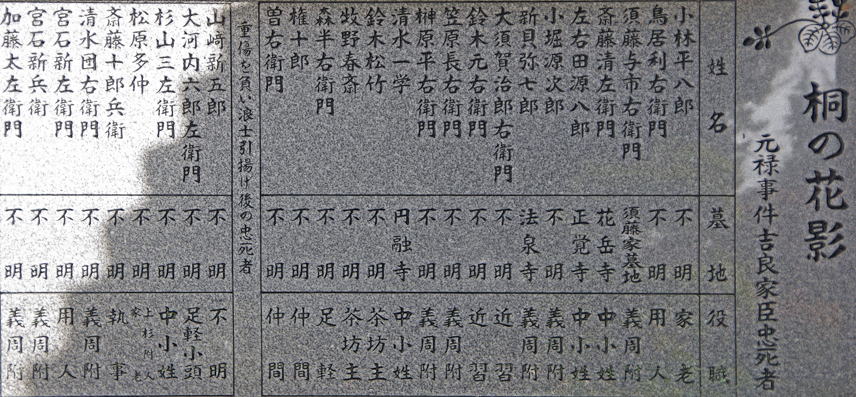 桐の花影
元禄事件吉良家臣忠死者
姓名 墓地 役職
小林平八郎 不明 家老
鳥居利右衛門 不明 用人
須藤与市右衛門 須藤家墓地 義周附
斎藤清左衛門 花岳寺 中小姓
左右田源八郎 正覚寺 中小姓
小堀源次郎 不明 義周附
新貝弥七郎 法泉寺 義周附
大須賀治郎右衛門 不明 近習
鈴木元右衛門 不明 近習
笠原長右衛門 不明 義周附
榊原平右衛門 不明 義周附
清水一学 円融寺 中小姓
鈴木松竹 不明 茶坊主
牧野春斎 不明 茶坊主
森半右衛門 不明 足軽
権十郎 不明 仲間
曽右衛門 不明 仲間
重傷を負い浪士引揚げ後の忠死者
山﨑新五郎 不明 不明
大河内六郎左衛門 不明 足軽小頭
杉山三左衛門 不明 中小姓
松原多仲 不明 上杉附人家老
斎藤十郎兵衛 不明 執事
清水団右衛門 不明 義周附
宮石新左衛門 不明 用人
宮石新兵衛 不明 義周附
加藤太左衛門 不明 義周附